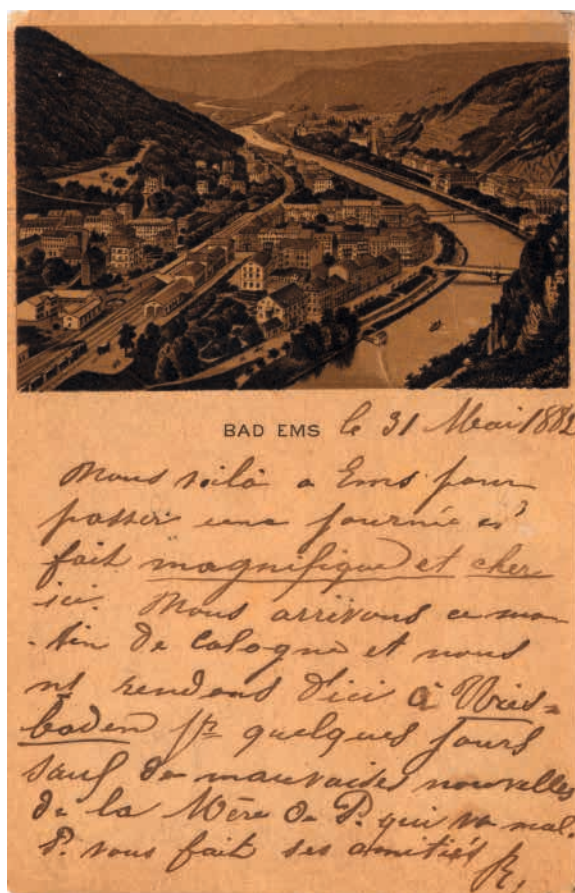 BAD EMS le 31 Mai 1882
Nous voilà a Ems pour
passer une journée il
fait magnifique et cher
ici. Nous arrivons ce ma-
-tin de Cologne et nous
ns rendons d'ici à Wies=
baden pr quelques jours
sauf de mauvaises nouvelles
de la Mère de P. qui va mal.
P. vous fait ses amitiés
R.